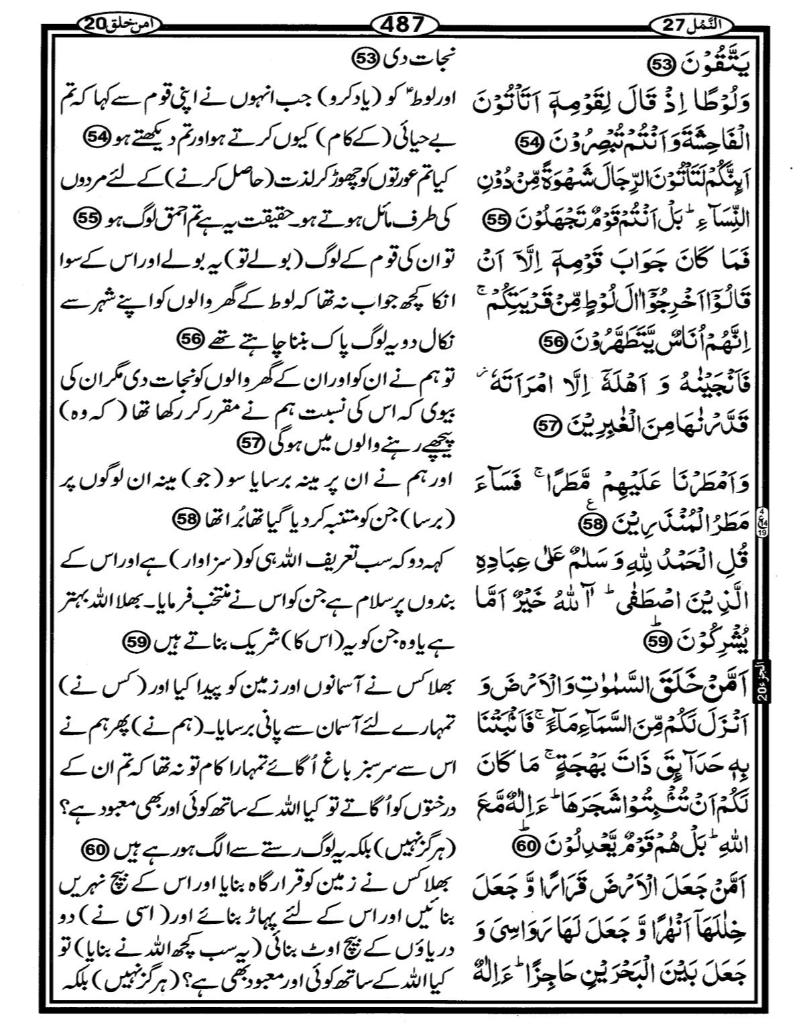 النَّمْل 27
487
امن خلق 20
يَتَّقُوۡنَ 53
وَلُوۡطًا اِذۡ قَالَ لِقَوۡمِهٖۤ اَتَاۡتُوۡنَ
الۡفَاحِشَةَ وَاَنۡتُمۡ تُبۡصِرُوۡنَ 54
اَٮِٕنَّكُمۡ لَتَاۡتُوۡنَ الرِّجَالَ شَهۡوَةً مِّنۡ دُوۡنِ
النِّسَآءِ ؕ بَلۡ اَنۡتُمۡ قَوۡمٌ تَجۡهَلُوۡنَ 55
فَمَا كَانَ جَوَابَ قَوۡمِهٖۤ اِلَّاۤ اَنۡ
قَالُوۡۤا اَخۡرِجُوۡۤا اٰلَ لُوۡطٍ مِّنۡ قَرۡيَتِكُمۡ ۚ
اِنَّهُمۡ اُنَاسٌ يَّتَطَهَّرُوۡنَ 56
فَاَنۡجَيۡنٰهُ وَ اَهۡلَهٗۤ اِلَّا امۡرَاَتَهٗ ۫
قَدَّرۡنٰهَا مِنَ الۡغٰبِرِيۡنَ 57
وَاَمۡطَرۡنَا عَلَيۡهِمۡ مَّطَرًا ۚ فَسَآءَ
مَطَرُ الۡمُنۡذَرِيۡنَ 58 ع
قُلِ الۡحَمۡدُ لِلّٰهِ وَ سَلٰمٌ عَلٰى عِبَادِهِ
الَّذِيۡنَ اصۡطَفٰى ؕ آٰللّٰهُ خَيۡرٌ اَمَّا
يُشۡرِكُوۡنَ ؕ 59
اَمَّنۡ خَلَقَ السَّمٰوٰتِ وَالۡاَرۡضَ وَ
اَنۡزَلَ لَكُمۡ مِّنَ السَّمَآءِ مَآءً ۚ فَاَنۡۢبَتۡنَا
بِهٖ حَدَآٮِٕقَ ذَاتَ بَهۡجَةٍ ۚ مَا كَانَ
لَكُمۡ اَنۡ تُنۡۢبِتُوۡا شَجَرَهَا ؕ ءَاِلٰهٌ مَّعَ
اللّٰهِ ؕ بَلۡ هُمۡ قَوۡمٌ يَّعۡدِلُوۡنَ ؕ 60
اَمَّنۡ جَعَلَ الۡاَرۡضَ قَرَارًا وَّ جَعَلَ
خِلٰلَهَاۤ اَنۡهٰرًا وَّ جَعَلَ لَهَا رَوَاسِىَ وَ
جَعَلَ بَيۡنَ الۡبَحۡرَيۡنِ حَاجِزًا ؕ ءَاِلٰهٌ
نجات دی 53
اور لوطؑ کو (یاد کرو) جب انہوں نے اپنی قوم سے کہا کہ تم
بے حیائی (کے کام) کیوں کرتے ہو اور تم دیکھتے ہو 54
کیا تم عورتوں کو چھوڑ کر لذت (حاصل کرنے) کے لئے مردوں
کی طرف مائل ہوتے ہو۔ حقیقت یہ ہے تم احمق لوگ ہو 55
تو ان کی قوم کے لوگ (بولے تو) یہ بولے اور اس کے سوا
انکا کچھ جواب نہ تھا کہ لوط کے گھر والوں کو اپنے شہر سے
نکال دو یہ لوگ پاک بننا چاہتے تھے 56
تو ہم نے ان کو اور ان کے گھر والوں کو نجات دی مگر ان کی
بیوی کہ اس کی نسبت ہم نے مقرر کر رکھا تھا ( کہ وہ)
پیچھے رہنے والوں میں ہوگی 57
اور ہم نے ان پر مینہ برسایا سو (جو) مینہ ان لوگوں پر
(برسا) جن کو متنبہ کر دیا گیا تھا بُرا تھا 58
کہہ دو کہ سب تعریف اللہ ہی کو (سزاوار) ہے اور اس کے
بندوں پر سلام ہے جن کو اس نے منتخب فرمایا۔ بھلا اللہ بہتر
ہے یا وہ جن کو یہ (اس کا) شریک بناتے ہیں 59
بھلا کس نے آسمانوں اور زمین کو پیدا کیا اور (کس نے)
تمہارے لئے آسمان سے پانی برسایا۔ (ہم نے) پھر ہم نے
اس سے سرسبز باغ اُگائے تمہارا کام تو نہ تھا کہ تم ان کے
درختوں کو اُگاتے تو کیا اللہ کے ساتھ کوئی اور بھی معبود ہے؟
(ہرگز نہیں) بلکہ یہ لوگ رستے سے الگ ہو رہے ہیں 60
بھلا کس نے زمین کو قرار گاہ بنایا اور اس کے بیچ نہریں
بنائیں اور اس کے لئے پہاڑ بنائے اور (اسی نے) دو
دریاؤں کے بیچ اوٹ بنائی (یہ سب کچھ اللہ نے بنایا) تو
کیا اللہ کے ساتھ کوئی اور معبود بھی ہے؟ (ہرگز نہیں) بلکہ
الجزء 20